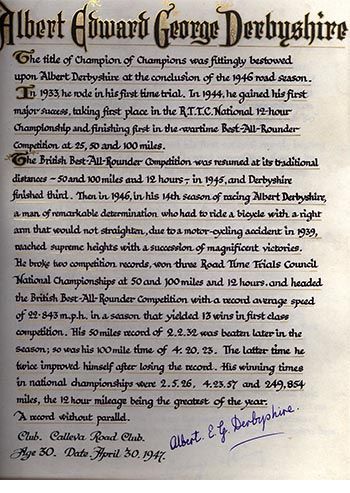 Albert Edward George Derbyshire
The title of Champion of Champions was fittingly bestowed
upon Albert Derbyshire at the conclusion of the 1946 road season.
In 1933, he rode in his first time trial. In 1944, he gained his first
major success, taking first place in the R.T.T.C. National 12-hour
Championship and finishing first in the wartime Best-All-Rounder
Competition at 25, 50 and 100 miles.
The British Best-All-Rounder Competition was resumed at its traditional
distances - 50 and 100 miles and 12 hours, - in 1945, and Derbyshire
finished third. Then in 1946, in his 14th season of racing Albert Derbyshire,
a man of remarkable determination who had to ride a bicycle with a right
arm that would not straighten, due to a motor-cycling accident in 1939,
reached supreme heights with a succession of magnificent victories.
He broke two competition records, won three Road Time Trials Council
National Championships at 50 and 100 miles and 12 hours, and headed
the British Best-All-Rounder Competition with a record average speed
of 22·843 m.p.h. in a season that yielded 13 wins in first class
competition. His 50 miles record of 2.2.32 was beaten later in the
season; so was his 100 mile time of 4. 20. 23. The latter time he
twice improved himself after losing the record. His winning times
in national championships were 2.5.26, 4.23.57 and 249,854
miles, the 12 hour mileage being the greatest of the year.
A record without parallel.
Club. Calleva Road Club.
Age 30. Date April 30, 1947.
Albert. E. G. Derbyshire.